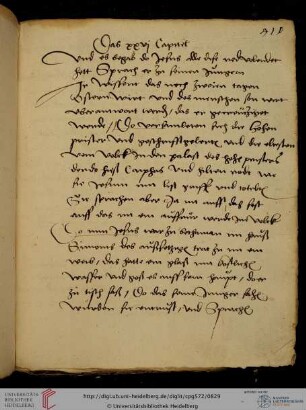 Das xxvj Capitel
Und es begab do Jesus alle dise red volendet
hett Sprach er zu seinen Jungern
Ir wissent das noch zweien tagen
Ostern wirt und des menschen sun wirt
uberantwort werden, das er gecreutziget
werde / Do versamleten sich die hohen
priester und geschrifftgelerten und die eltesten
vom volck In den palast des hohe priesters
der do heist Cayphas und hielten rodt wie
sie Jesum mit list und todten
Sie sprachen aber Ja nit auff das fest
auff das nit ein auffrur werde Im volck
Do nun Jesus war zu bethanien im hauß
Simonis des außsetzigen trat zu im ein
weib, das hatte ein glaß mit kostlichem
wasser und goß es auff sein haupt, do er
zu tisch saß / Do das seine Junger sahen
wurden sie und Sprachen
UNIVERSITÄTS-
BIBLIOTHEK
HEIDELBERG
http://digi.ub.uni-heidelberg.de/diglit/cpg572/0829
© Universitätsbibliothek Heidelberg